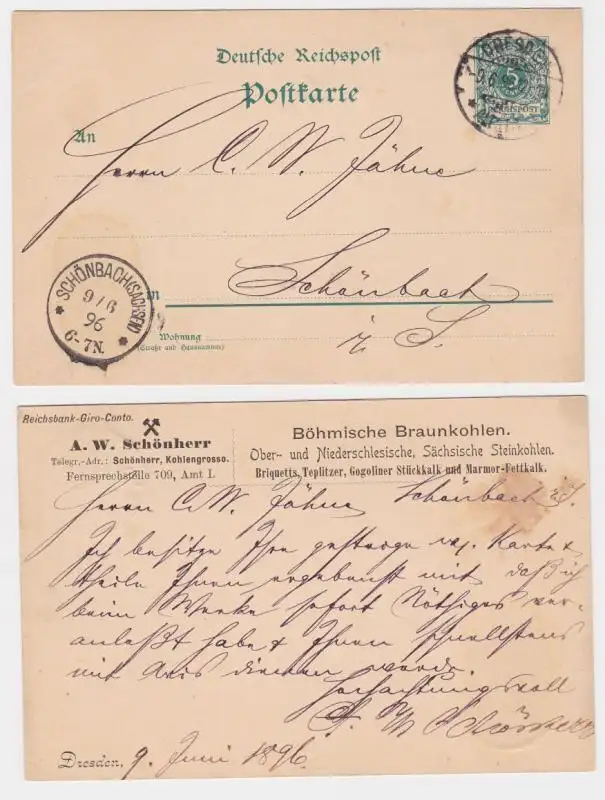 Deutsche Reichspost
Postkarte
An
Herrn C. W. Jähne
Schönbach
in
i. S.
Wohnung
(Straße und Hausnummer)
DRESDEN
9 6
5
REICHSPOST
SCHÖNBACH (SACHSEN)
9/6
96
6-7N.
Reichsbank-Giro-Conto.
A. W. Schönherr
Telegr.-Adr.: Schönherr, Kohlengrosso.
Fernsprechstelle 709, Amt I.
Böhmische Braunkohlen.
Ober- und Niederschlesische, Sächsische Steinkohlen.
Briquetts, Teplitzer, Gogoliner Stückkalk und Marmor-Fettkalk.
Herrn C. W. Jähne, Schönbach i/S.
Ich besitze Ihre gestrige Karte &
theile Ihnen ergebenst mit, daß ich
beim Werke sofort Nöthiges ver-
anlaßt habe & Ihnen schnellstens
mit Avis dienen werde.
Hochachtungsvoll
A. W. Schönherr
Dresden, 9. Juni 1896.